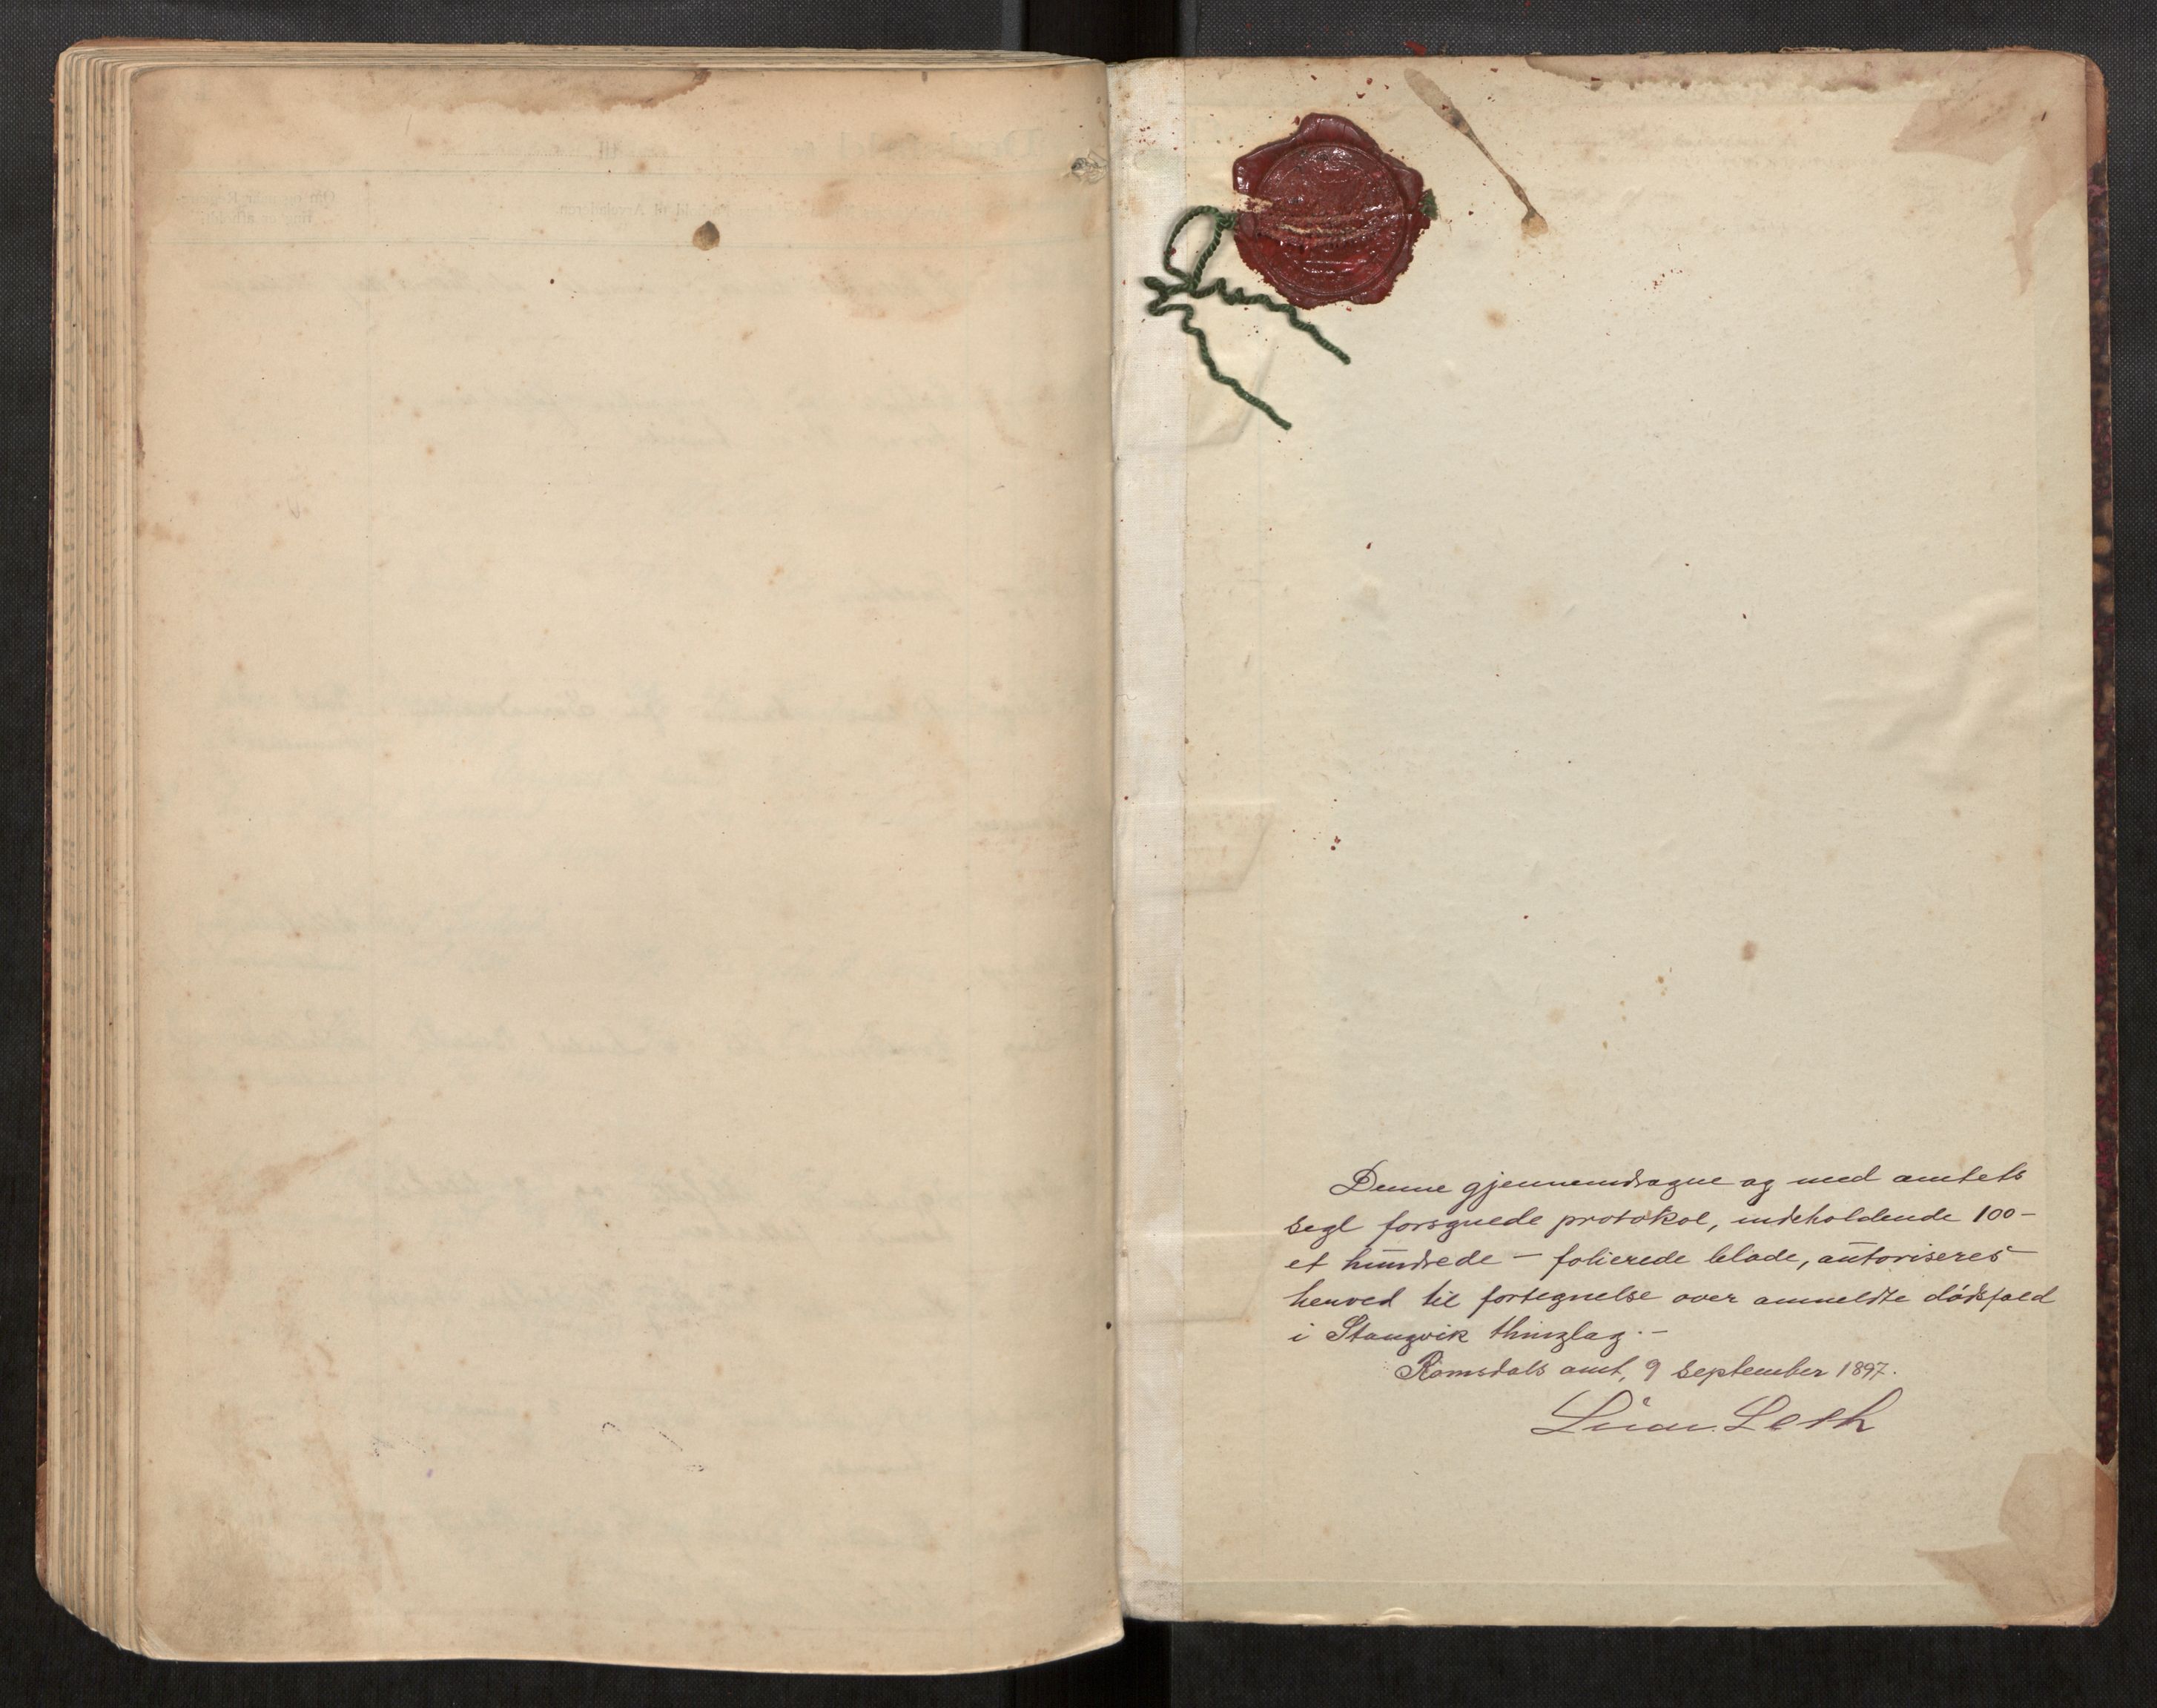 Denne gjennemdragne og med amtets
segl forsynede protokol, indeholdende 100 –
et hundrede – folierede blade, autoriseres
herved til fortegnelse over anmeldte dødsfald
i Stangvik thinglag. –
Romsdals amt, 9 september 1897.
Leth